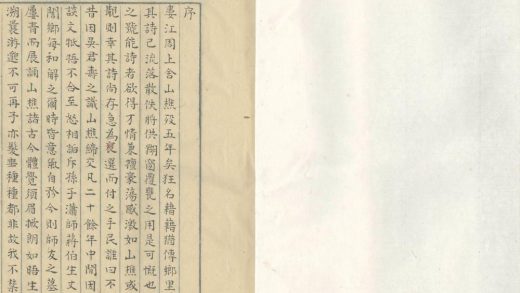 序
婁江周上舍山樵歿五年矣狂名藉藉猶傳鄉里
其詩已流落散佚將供糊窗覆甕之用是可慨也
之號能詩者欲得才情兼擅豪蕩感激如山樵或
覯則幸其詩尚存急為甄選而付之手民誰曰不
昔因吳君壽之識山樵締交凡二十餘年中間因
談文牴牾不合至怒相詬斥孫子瀟師蔣伯生丈
閭鄉每和解之爾時皆意氣自矜今則師友之墓
屢青而展誦山樵諸古今體覺鬚眉掀朗如晤生
溯曩游邈不可再予亦髮蚤種種都非故我不禁